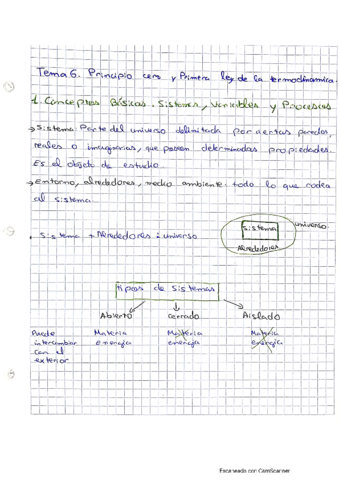 Tema 6. Principio cero y Primera ley de la termodinámica.
1. Conceptos Básicos. Sistemas, Variables y Procesos
→ Sistema: Parte del universo delimitada por ciertas paredes,
reales o imaginarias, que poseen determinadas propiedades.
Es el objeto de estudio.
→ Entorno, alrededores, medio ambiente: todo lo que rodea
al sistema.
universo
Sistema
Alrededores
Sistema + Alrededores = universo
tipos de sistemas
Abierto cerrado Aislado
Puede intercambiar con el exterior
Materia Materia Materia
energía energía energía
Escaneado con CamScanner